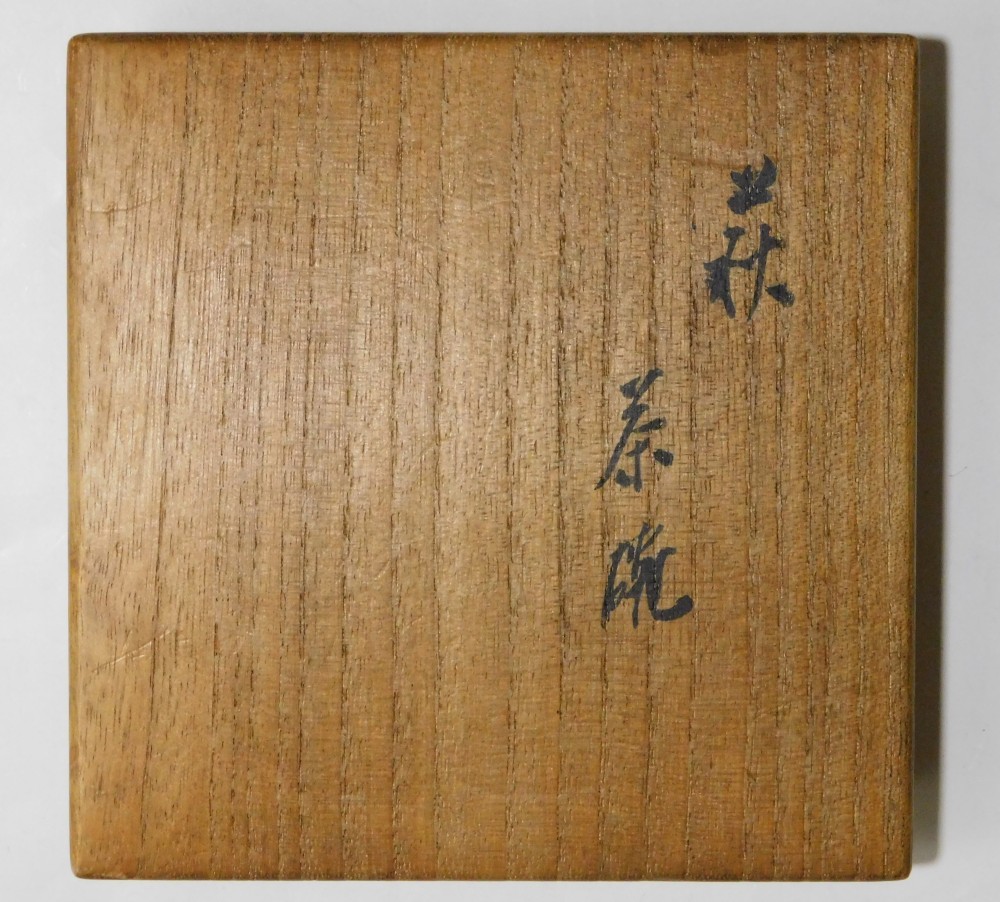 萩
茶碗